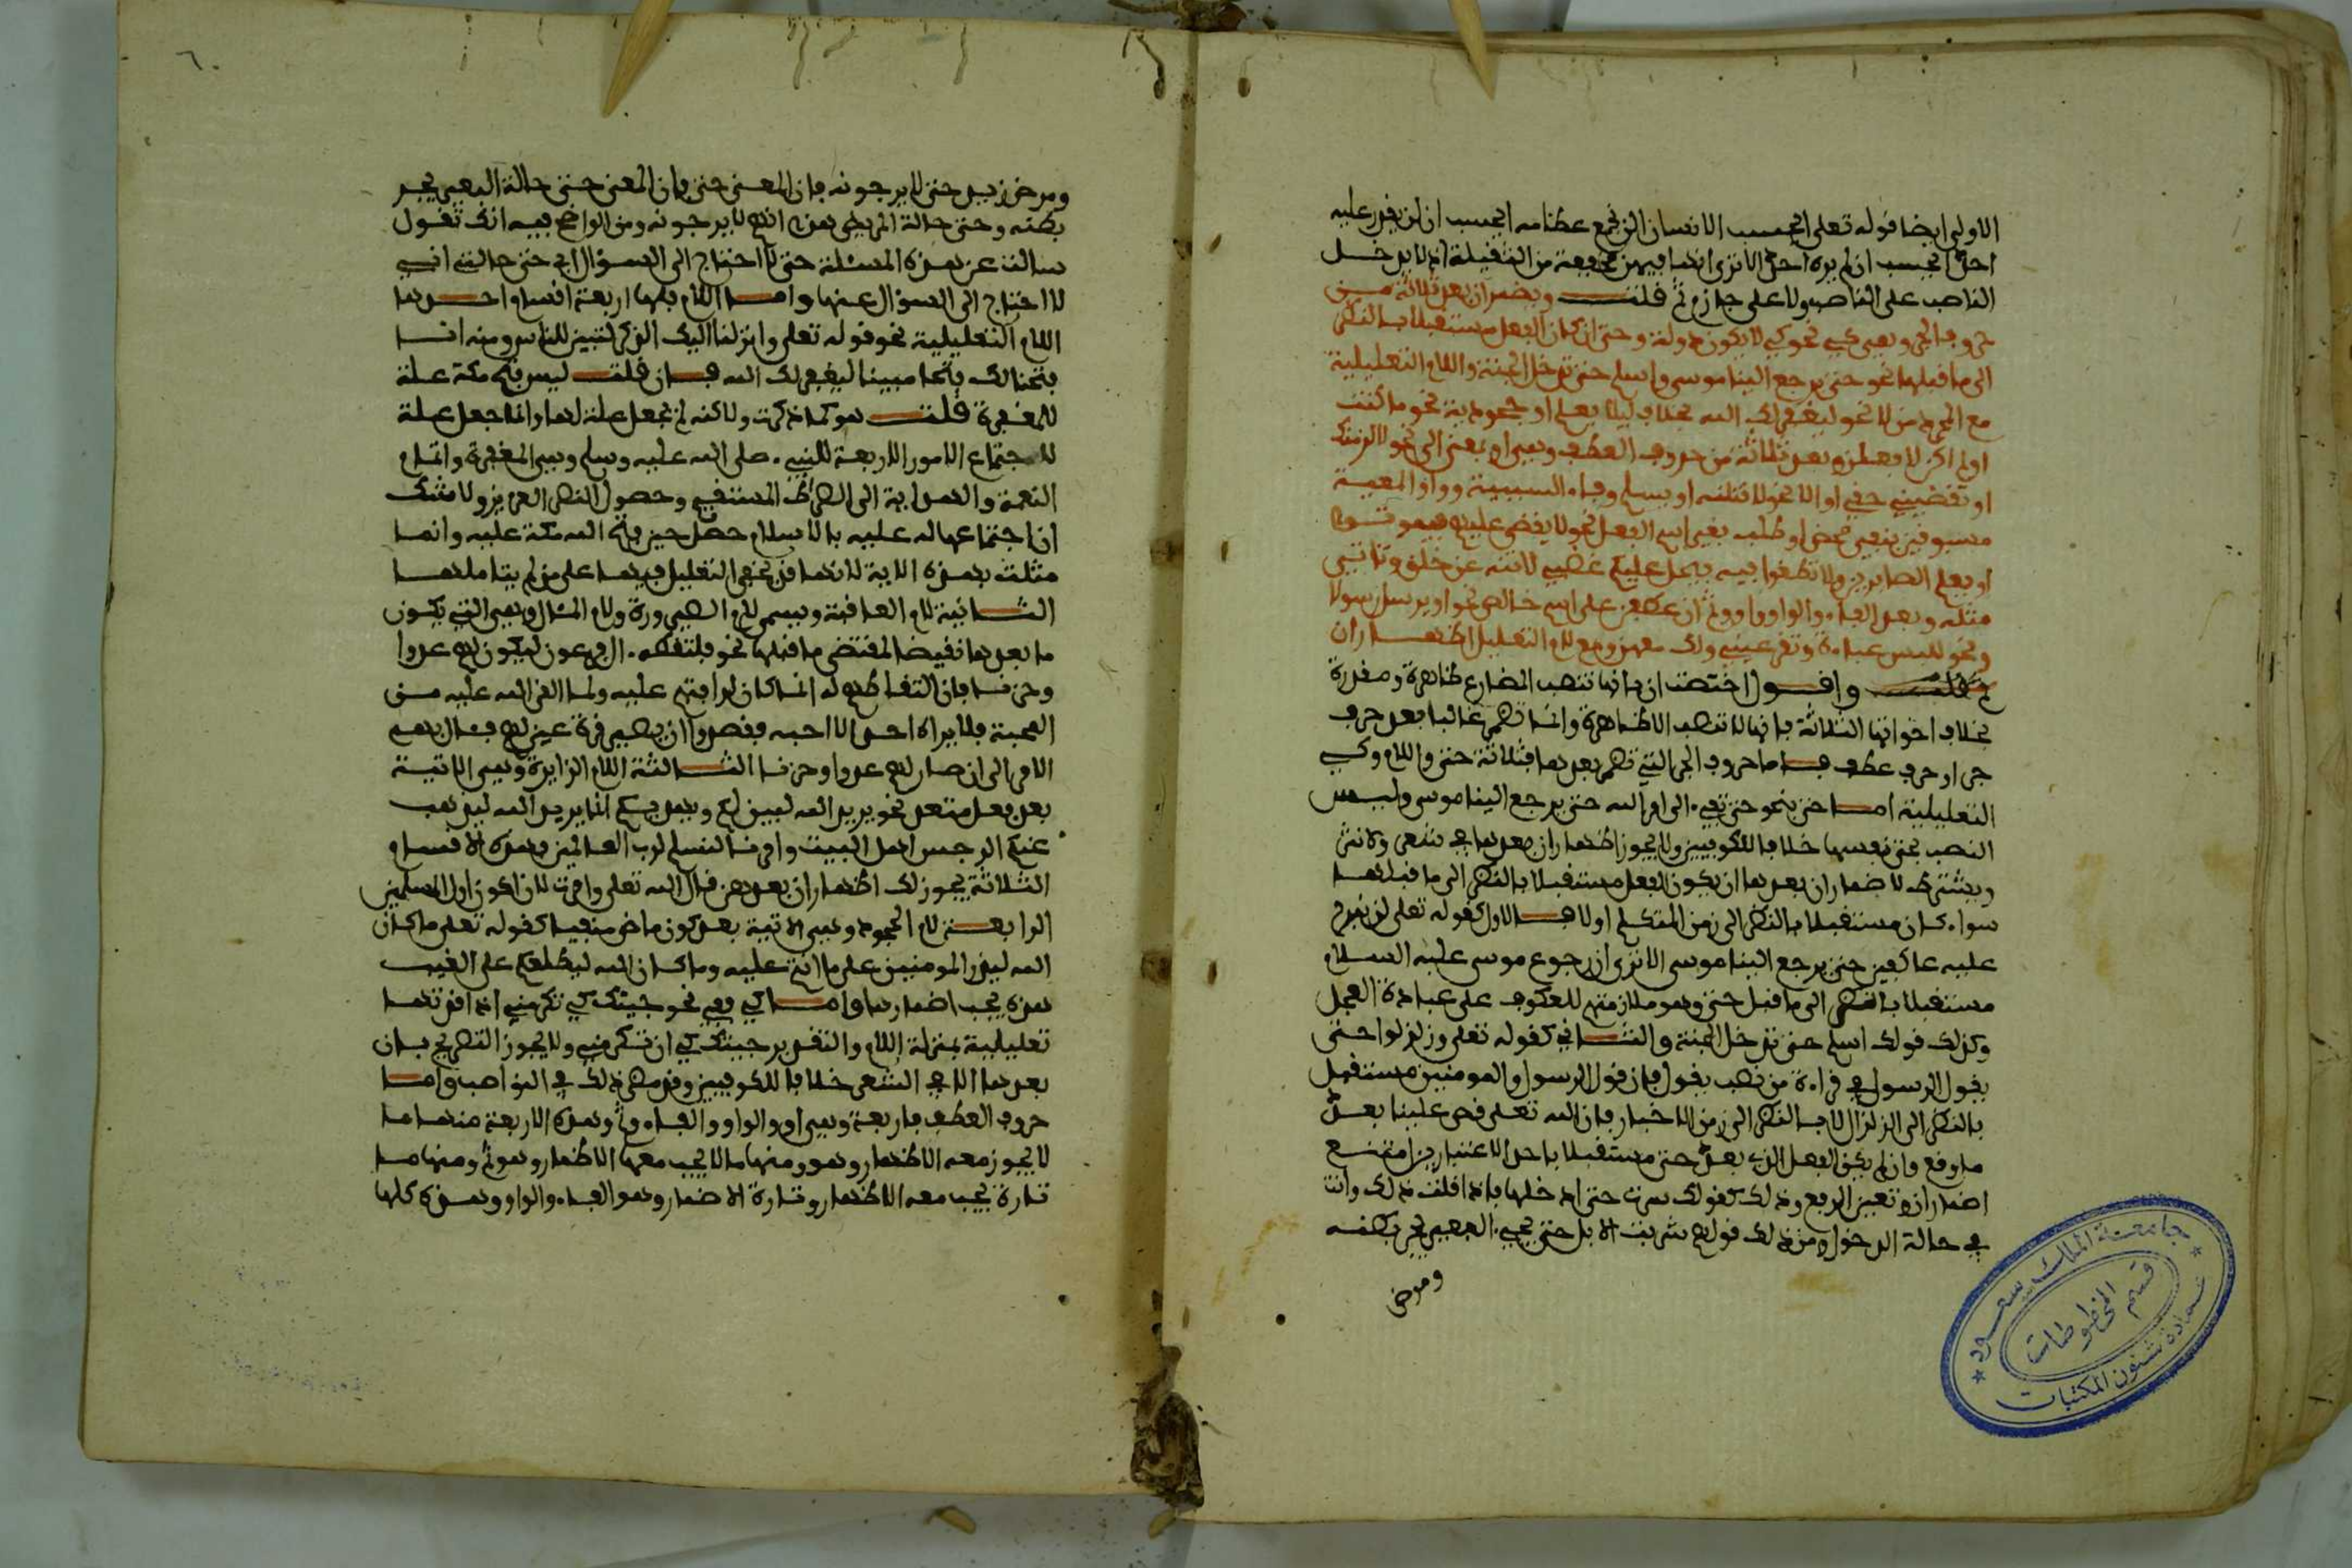 الاولى ايضا قوله تعلى ايحسب الانسان الن نجمع عظامه ايحسب ان لن يقدر عليه
احد ايحسب ان لم يره احد الا ترى انها فيهن مخففة من الثقيلة اذ لا يدخل
الناصب على الناصب ولا على جازم ثم قلت وتضمر ان بعد ثلاثة من
حروف الجر وهي كي نحو كي لا يكون دولة وحتى ان كان الفعل مستقبلا بالنظر
الى ما قبلها نحو حتى يرجع الينا موسى واسلم حتى تدخل الجنة واللام التعليلية
مع المجرد من لا نحو ليغفر لك الله بخلاف ليلا يعلم او جحودية نحو ما كنت
او لم اكن لافعل وبعد ثلاثة من حروف العطف وهي او بمعنى الى نحو لالزمنك
او تقضيني حقي او الا نحو لاقتلنه او يسلم وفاء السببية وواو المعية
مسبوقين بنفي محض او طلب بغير اسم الفعل نحو لا يقضى عليهم فيموتوا
او يعلم الصابرين ولا تطغوا فيه فيحل عليكم غضبي لا تنه عن خلق وتاتي
مثله وبعد الفاء والواو واو وثم ان عطفن على اسم خالص نحو او يرسل رسولا
ونحو للبس عباءة وتقر عيني ولك معهن ومع لام التعليل اظهار ان
واقول اختصت ان بانها تنصب المضارع ظاهرة ومقدرة
بخلاف اخواتها الثلاثة فانها لا تنصب الا ظاهرة وانما تضمر غالبا بعد حرف
جر او حرف عطف فاما حروف الجر التي تضمر بعدها فثلاثة حتى واللام وكي
التعليلية اما حتى فنحو حتى تفيء الى امر الله حتى يرجع الينا موسى وليس
النصب بحتى نفسها خلافا للكوفيين ولا يجوز اظهار ان بعدها في شعر ولا نثر
ويشترط لاضمار ان بعدها ان يكون الفعل مستقبلا بالنظر الى ما قبلها
سواء كان مستقبلا بالنظر الى زمن المتكلم او لا فالاول كقوله تعلى لن نبرح
عليه عاكفين حتى يرجع الينا موسى الا ترى ان رجوع موسى عليه السلام
مستقبلا بالنظر الى ما قبل حتى وهو ملازمتهم للعكوف على عبادة العجل
وكذلك قولك اسلم حتى تدخل الجنة والثاني كقوله تعلى وزلزلوا حتى
يقول الرسول في قراءة من نصب يقول فان قول الرسول والمومنين مستقبل
بالنظر الى الزلزال لا بالنظر الى زمن الاخبار فان الله تعلى قص علينا بعد
ما وقع وان لم يكن الفعل الذي بعد حتى مستقبلا باحد الاعتبارين امتنع
اضمار ان وتعين الرفع وذلك كقولك سرت حتى ادخلها فاذا قلت ذلك وانت
في حالة الدخول ومن ذلك قولهم شربت الابل حتى يجيء البعير يجر بطنه
ومرض
ومرض زيد حتى لا يرجونه فان المعنى حتى فان المعنى حتى حالة البعير يجر
بطنه وحتى حالة المريض هذه انهم لا يرجونه ومن الواضح فيه انك تقول
سالت عن هذه المسئلة حتى لا احتاج الى السؤال اي حتى حالتي اني
لا احتاج الى السؤال عنها واما اللام فلها اربعة اقسام احدها
اللام التعليلية نحو قوله تعلى وانزلنا اليك الذكر لتبين للناس ومنه انا
فتحنا لك فتحا مبينا ليغفر لك الله فان قلت ليس فتح مكة علة
للمغفرة قلت هو كما ذكرت ولاكنه لم يجعل علة لها وانما جعل علة
لاجتماع الامور الاربعة للنبي صلى الله عليه وسلم وهي المغفرة واتمام
النعمة والهداية الى الصراط المستقيم وحصول النصر العزيز ولا شك
ان اجتماعها له عليه بالاسلام حصل حين فتح الله مكة عليه وانما
مثلت بهذه الاية لانها قد يخفى التعليل فيها على من لم يتاملها
الثانية لام العاقبة وتسمى لام الصيرورة ولام المئال وهي التي يكون
ما بعدها نقيضا لمقتضى ما قبلها نحو فالتقطه ءال فرعون ليكون لهم عدوا
وحزنا فان التقاطهم له انما كان لرافتهم عليه ولما القى الله عليه من
المحبة فلا يراه احد الا احبه فقصدوا ان يصير قرة عين لهم فئال بهم
الامر الى ان صار لهم عدوا وحزنا الثالثة اللام الزايدة وهي الاتية
بعد فعل متعد نحو يريد الله ليبين لكم ويهديكم انما يريد الله ليذهب
عنكم الرجس اهل البيت وامرنا لنسلم لرب العالمين وهذه الاقسام
الثلاثة يجوز لك اظهار ان بعدهن قال الله تعلى وامرت لان اكون اول المسلمين
الرابعة لام الجحود وهي الاتية بعد كون ماض منفيا كقوله تعلى ما كان
الله ليذر المومنين على ما انتم عليه وما كان الله ليطلعكم على الغيب
هذه يجب اضمارها واما كي فهي نحو جيتك كي تكرمني اذا قدرتها
تعليلية بمنزلة اللام والتقدير جيتك كي ان تكرمني ولا يجوز التصريح بان
بعدها الا في الشعر خلافا للكوفيين وقد مضى ذلك في النواصب واما
حروف العطف فاربعة وهي او والواو والفاء وثم وهذه الاربعة منها ما
لا يجوز معه الاظهار وهو او ومنها ما لا يجب معها الاظهار وهو ثم ومنها ما
تارة يجب معه الاظهار وتارة الاضمار وهو الفاء والواو وهذه كلها
جامعة الملك سعود
قسم المخطوطات
عمادة شئون المكتبات